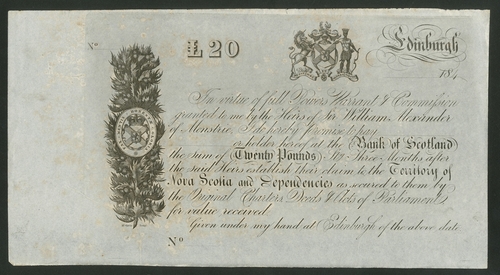 No
£20
Edinburgh
184
In virtue of full Powers Warrant & Commission
granted to me by the Heirs of Sir William Alexander
of Menstrie, I do hereby Promise to pay
or holder hereof at the Bank of Scotland
the sum of Twenty Pounds Stg Three Months after
the said Heirs establish their claim to the Territory of
Nova Scotia and Dependencies as secured to them by
the Original Charters, Deeds & Acts of Parliament,
for value received.
Given under my hand at Edinburgh of the above date
No